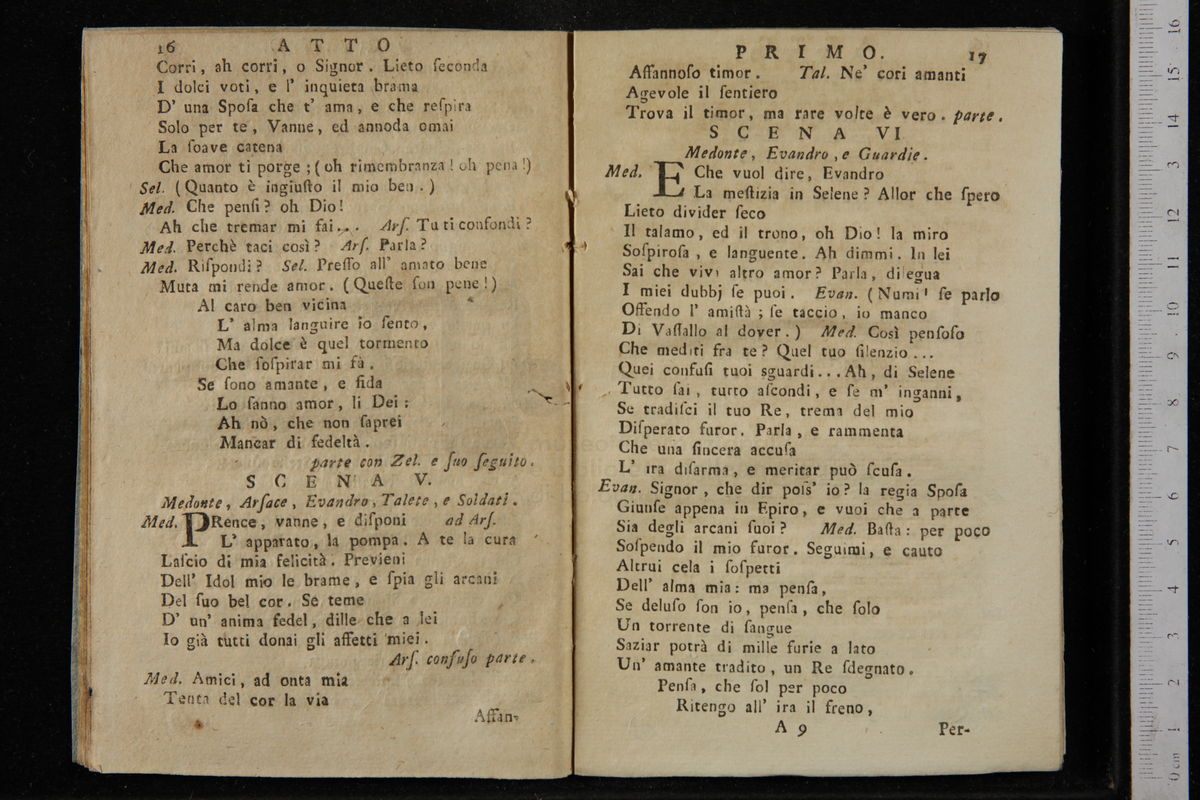 16 A T T O
Corri, ah corri, o Signor. Lieto ſeconda
I dolci voti, e l' inquieta brama
D' una Spoſa che t' ama, e che reſpira
Solo per te, Vanne, ed annoda omai
La ſoave catena
Che amor ti porge; (oh rimembranza! oh pena!)
Sel. (Quanto è ingiuſto il mio ben.)
Med. Che penſi? oh Dio!
Ah che tremar mi fai... Arſ. Tu ti confondi?
Med. Perchè taci così? Arſ. Parla?
Med. Riſpondi? Sel. Preſſo all' amato bene
Muta mi rende amor. (Queſte ſon pene!)
Al caro ben vicina
L' alma languire io ſento,
Ma dolce è quel tormento
Che ſoſpirar mi fà.
Se ſono amante, e fida
Lo ſanno amor, li Dei:
Ah nò, che non ſaprei
Mancar di fedeltà.
parte con Zel. e ſuo ſeguito.
S C E N A V.
Medonte, Arſace, Evandro, Talete, e Soldati.
Med. PRence, vanne, e diſponi ad Arſ.
L' apparato, la pompa. A te la cura
Laſcio di mia felicità. Previeni
Dell' Idol mio le brame, e ſpia gli arcani
Del ſuo bel cor. Se teme
D' un' anima fedel, dille che a lei
Io già tutti donai gli affetti miei.
Arſ. confuſo parte.
Med. Amici, ad onta mia
Tenta del cor la via
Affan-
P R I M O. 17
Affannoſo timor. Tal. Ne' cori amanti
Agevole il ſentiero
Trova il timor, ma rare volte è vero. parte.
S C E N A VI
Medonte, Evandro, e Guardie.
Med. E Che vuol dire, Evandro
La meſtizia in Selene? Allor che ſpero
Lieto divider ſeco
Il talamo, ed il trono, oh Dio! la miro
Soſpiroſa, e languente. Ah dimmi. In lei
Sai che vivi altro amor? Parla, dilegua
I miei dubbj ſe puoi. Evan. (Numi! ſe parlo
Offendo l' amiſtà; ſe taccio, io manco
Di Vaſſallo al dover.) Med. Così penſoſo
Che mediti fra te? Quel tuo ſilenzio...
Quei confuſi tuoi sguardi...Ah, di Selene
Tutto ſai, turto aſcondi, e ſe m' inganni,
Se tradiſci il tuo Re, trema del mio
Diſperato furor. Parla, e rammenta
Che una ſincera accuſa
L' ira diſarma, e meritar può ſcuſa.
Evan. Signor, che dir poſs' io? la regia Spoſa
Giunſe appena in Epiro, e vuoi che a parte
Sia degli arcani ſuoi? Med. Baſta: per poco
Soſpendo il mio furor. Seguimi, e cauto
Altrui cela i ſoſpetti
Dell' alma mia: ma penſa,
Se deluſo ſon io, penſa, che ſolo
Un torrente di ſangue
Saziar potrà di mille furie a lato
Un' amante tradito, un Re ſdegnato.
Penſa, che ſol per poco
Ritengo all' ira il freno,
A 9 Per-
0 cm 1 2 3 4 5 6 7 8 9 10 11 12 13 14 15 16